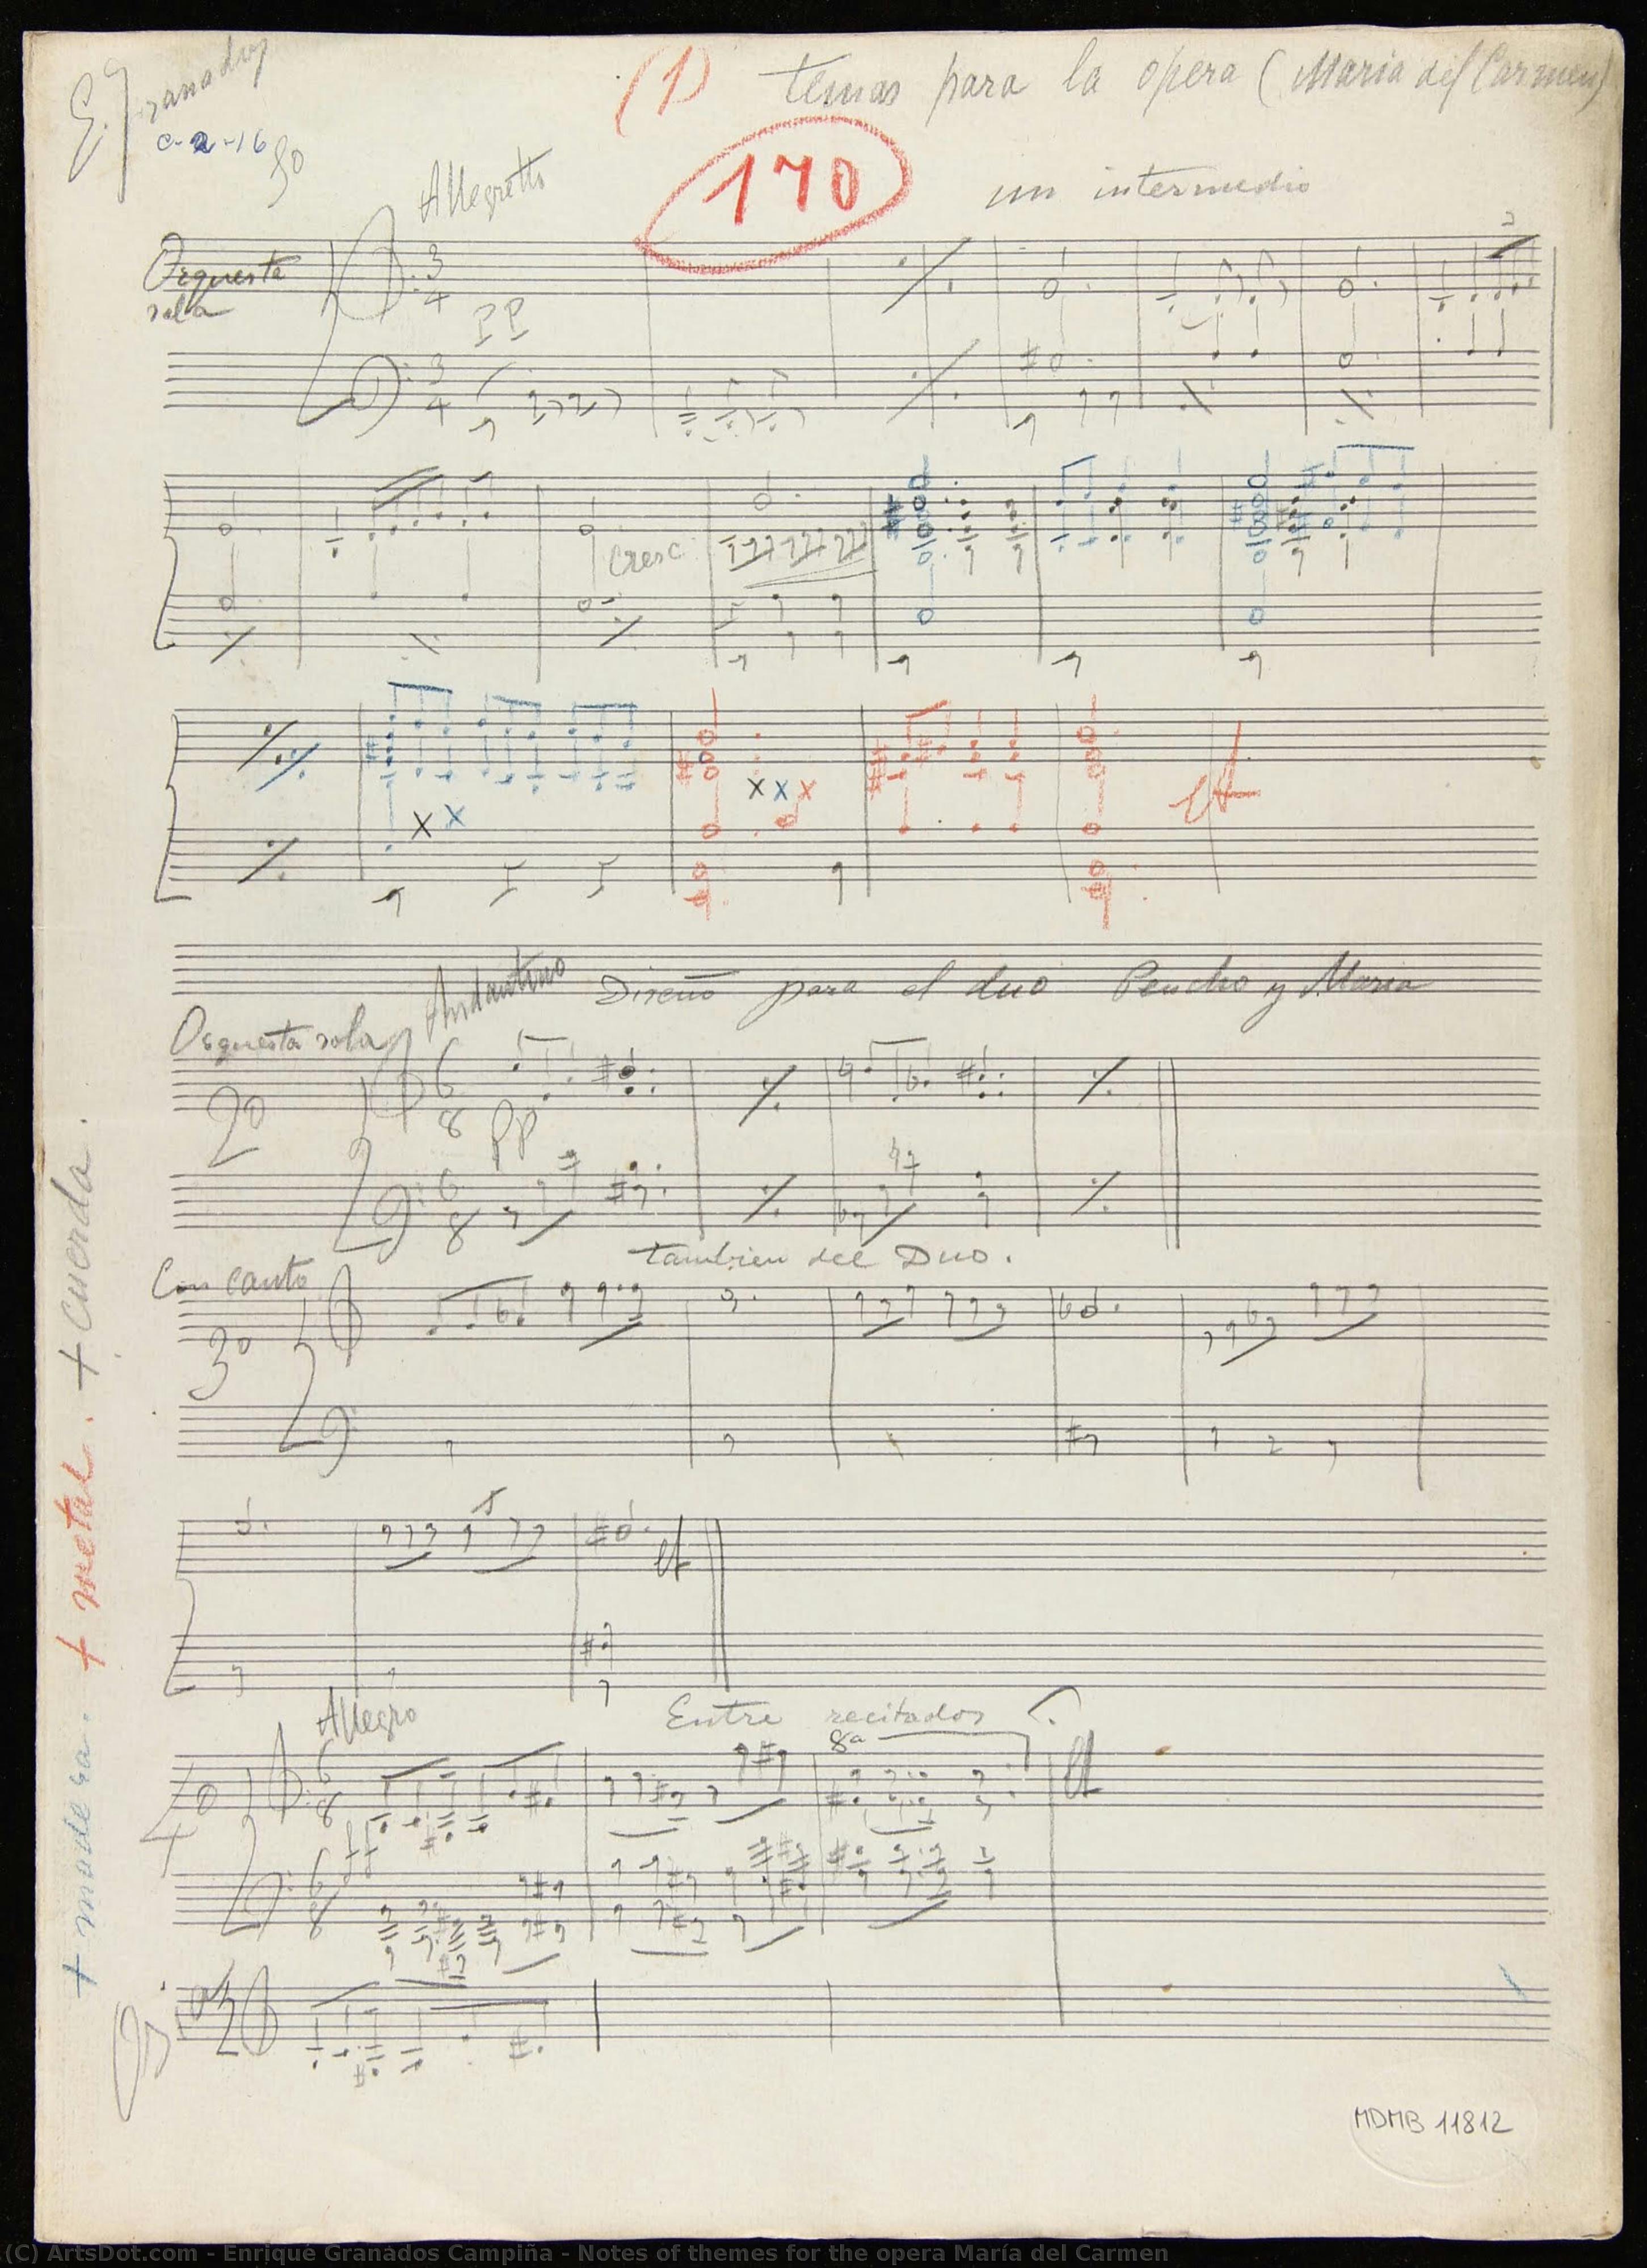 E. Granados
c-2-16
(1) temas para la opera (Maria del Carmen)
170
un intermedio
Allegretto
Orquesta
sola
3
4
PP
3
4
Cresc
x x
x x x
et
Andantino
Diseño para el duo Pencho y Maria
Orquesta sola
2º
6
8
pp
6
8
tambien del Duo.
Con canto
3º
et
Allegro
Entre recitados
8ª
4º
6
8
ff
6
8
et
+ madera. + metal. + cuerda.
MDMB 11812
(C) ArtsDot.com - Enrique Granados Campiña - Notes of themes for the opera María del Carmen